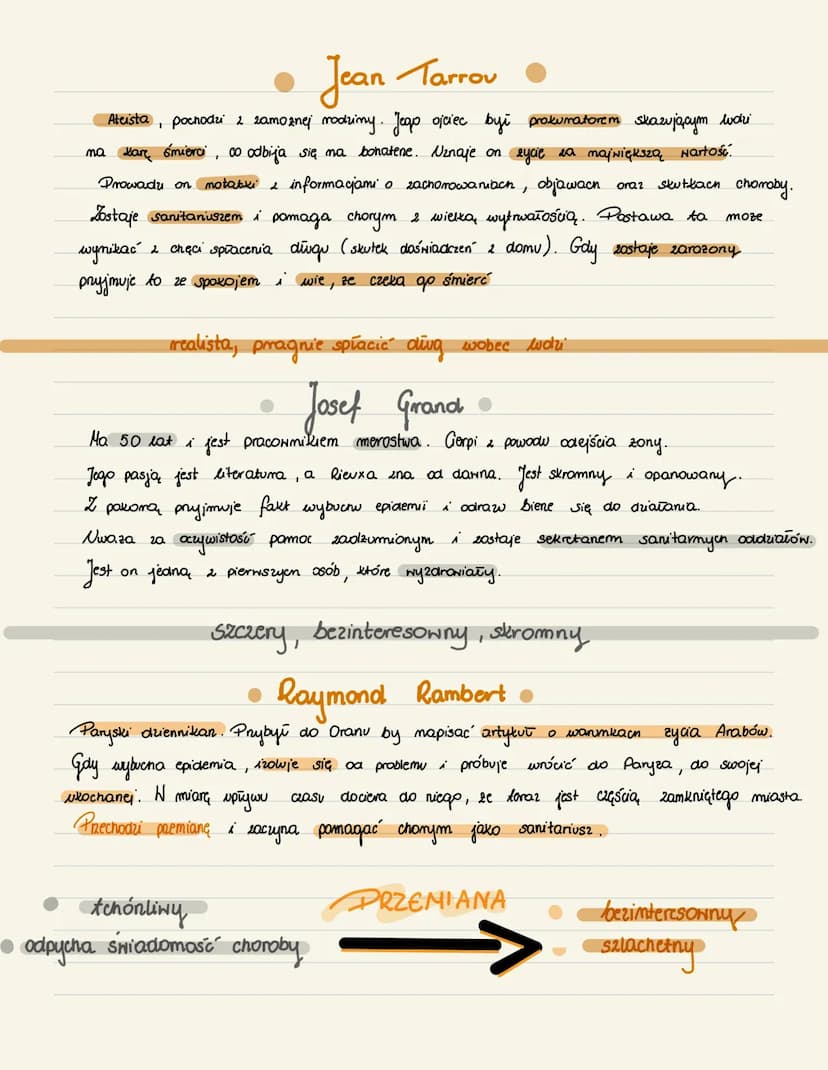 Jean Tarrou
Ateista, pochodzi z zamożnej rodziny. Jego ojciec był prokuratorem skazującym ludzi
na karę śmierci, co odbija się na bohaterze. Uznaje on życie za największą wartość.
Prowadzi on notatki z informacjami o zachorowaniach, objawach oraz skutkach choroby.
Zostaje sanitariuszem i pomaga chorym z wielką wytrwałością. Postawa ta może
wynikać z chęci spłacenia długu (skutek doświadczeń z domu). Gdy zostaje zarażony
przyjmuje to ze spokojem i wie, że czeka go śmierć
realista, pragnie spłacić dług wobec ludzi
Josef Grand
Ma 50 lat i jest pracownikiem merostwa. Cierpi z powodu odejścia żony.
Jego pasją jest literatura, a Rieuxa zna od dawna. Jest skromny i opanowany.
Z pokorą przyjmuje fakt wybuchu epidemii i odrazu bierze się do działania.
Uważa za oczywistość pomoc zadżumionym i zostaje sekretarzem sanitarnych oddziałów.
Jest on jedną z pierwszych osób, które wyzdrowiały.
szczery, bezinteresowny, skromny
Raymond Rambert
Paryski dziennikarz. Przybył do Oranu by napisać artykuł o warunkach życia Arabów.
Gdy wybucha epidemia, izoluje się od problemu i próbuje wrócić do Paryża, do swojej
ukochanej. W miarę upływu czasu dociera do niego, że teraz jest częścią zamkniętego miasta
Przechodzi przemianę i zaczyna pomagać chorym jako sanitariusz.
tchórzliwy
odpycha świadomość choroby
PRZEMIANA
bezinteresowny
szlachetny